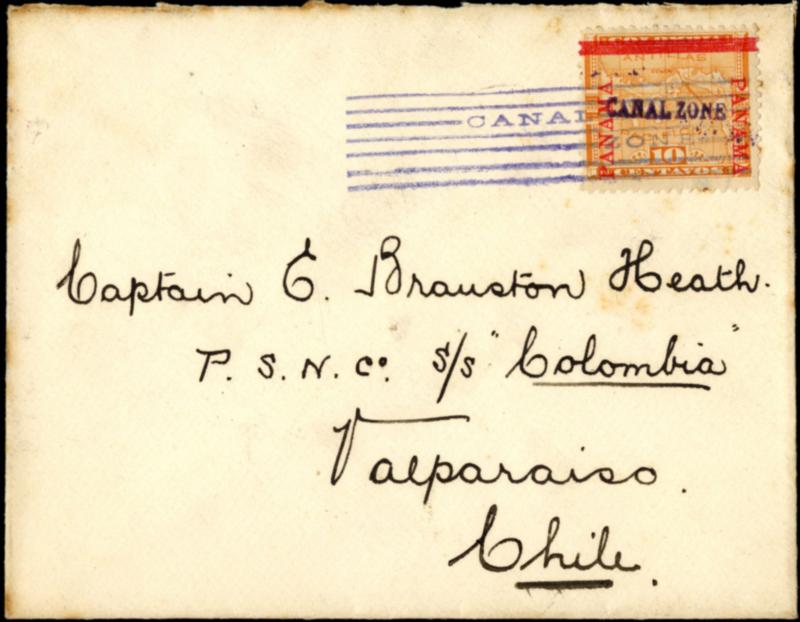 COLOMBIA
ANTILLAS
PANAMA
PANAMA
CANAL ZONE
10
CENTAVOS
CANAL
ZONE
Captain E. Brauston Heath.
P. S. N. Co. S/S "Colombia"
Valparaiso.
Chile.